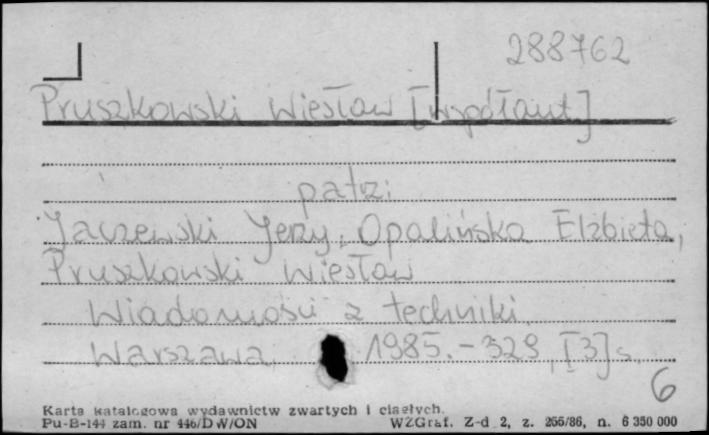 288762
Pruszkowski Wiesław [współaut]
patrz:
Jaczewski Jerzy, Opalińska Elżbieta,
Pruszkowski Wiesław
Wiadomości z techniki.
Warszawa 1985. - 329, [3] s.
6
Karta katalogowa wydawnictw zwartych i ciągłych.
Pu-B-144 zam. nr 446/DW/ON WZGraf. Z-d 2, z. 255/86, n. 6 350 000